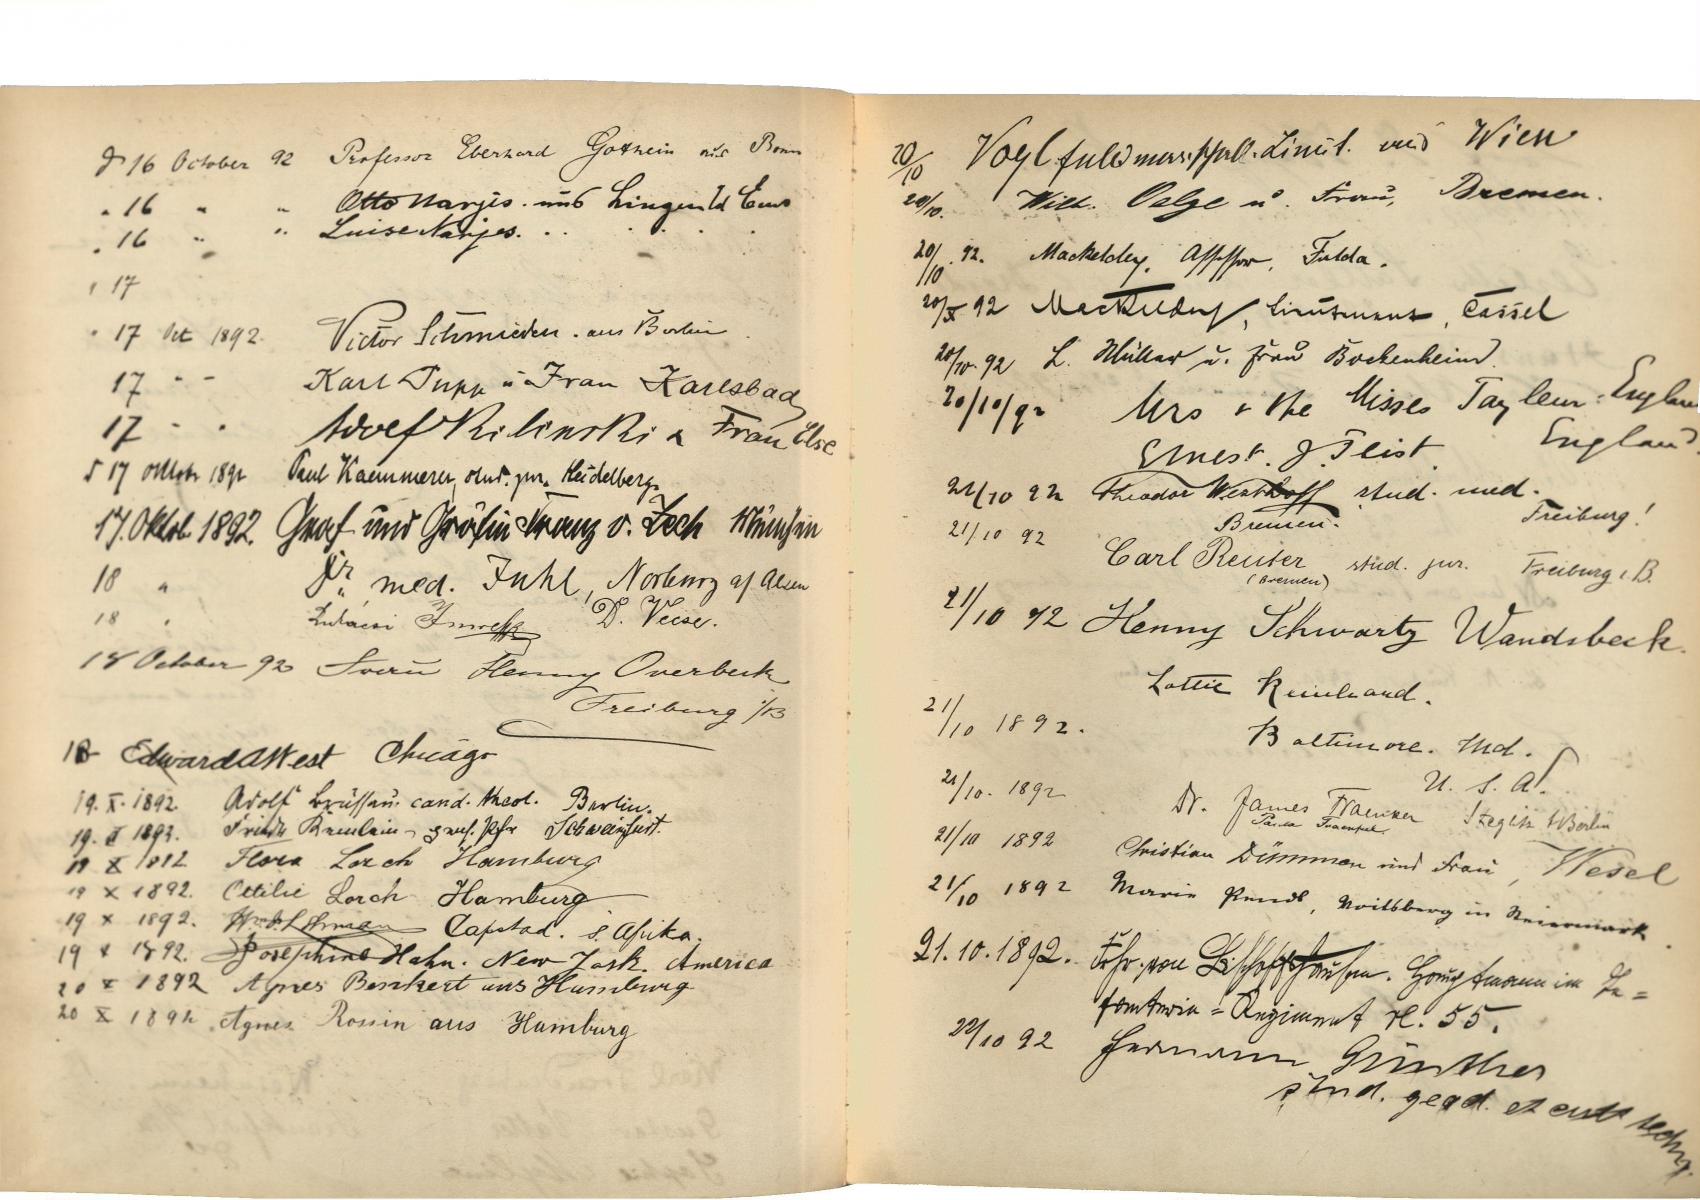 16 October 92 Professor Eberhard Gothein aus Bonn
" 16 " " Otto Narjes und
" 16 " " Luise Narjes. " "
" 17
" 17 Oct 1892. Victor Schmieden aus Berlin
17 " " Karl Pupp u Frau Karlsbad
17 " " Adolf Kilinski & Frau Else
17 Oktob 1892 Paul Kaemmerer, stud. jur. Heidelberg.
17. Oktob. 1892. Graf und Gräfin Franz v. Zech München
18 " Dr. med. Juhl, Norburg a/ Alsen
18 "
18 October 92 Henny Overbeck
Freiburg i/B
18 Edward A West Chicago
19. X. 1892. Adolf cand. theol. Berlin.
19. X 1892. Schweinfurt.
19 X 1892 Flora Lorch Hamburg
19 X 1892. Ottilie Lorch Hamburg
19 X 1892. Capstad. S. Afrika.
19 X 1892. Josephine Hahn. New York. America
20 X 1892 Agnes Benkert aus Hamburg
20 X 1892 Agnes Rossin aus Hamburg
20/10 Vogl Wien
20/10. Wilh. Oelze u. Frau, Bremen.
20/10. 92. Mackeldey, Assessor, Fulda.
20/X 92 Mackeldey, Lieutenant, Cassel
20/10. 92 L. Müller u. Frau Bockenheim
20/10/92 Mrs & the Misses Tayleur. England
Ernest. J. England
21/10 92 Theodor Westhoff stud. med.
Bremen. Freiburg!
21/10 92 Carl Reuter stud. jur. Freiburg i. B.
(Bremen)
21/10 92 Henny Schwartz Wandsbeck.
Lottie Reinhard.
21/10 1892. Baltimore. Md.
U. S. A.
21/10. 1892 Dr. James Fraenkel Steglitz b/Berlin
Paula Fraenkel
21/10 1892 Christian Dümmen und Frau, Wesel
21/10 1892 Marie Voitsberg in Steiermark.
21. 10. 1892. Frhr. von Bischoffshausen. Hauptmann im In=
fanterie=Regiment N. 55.
22/10 92 Hermann Günther
stud.